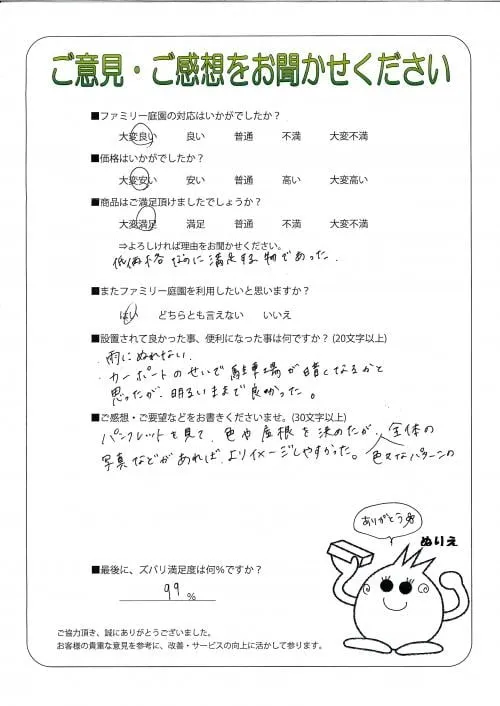 ご意見・ご感想をお聞かせください
■ファミリー庭園の対応はいかがでしたか？
大変良い 良い 普通 不満 大変不満
■価格はいかがでしたか？
大変安い 安い 普通 高い 大変高い
■商品はご満足頂けましたでしょうか？
大変満足 満足 普通 不満 大変不満
⇒よろしければ理由をお聞かせください。
低価格なのに満足する物であった。
■またファミリー庭園を利用したいと思いますか？
はい どちらとも言えない いいえ
■設置されて良かった事、便利になった事は何ですか？(20文字以上)
・雨にぬれない。
・カーポートのせいで駐車場が暗くなるかと
思ったが、明るいままで良かった。
■ご感想・ご要望などをお書きくださいませ。(30文字以上)
パンフレットを見て、色や屋根を決めたが、全体の
写真などがあれば、よりイメージしやすかった。色々なパターンの
ありがとう
ぬりえ
■最後に、ズバリ満足度は何%ですか？
99 %
ご協力頂き、誠にありがとうございました。
お客様の貴重な意見を参考に、改善・サービスの向上に活かして参ります。